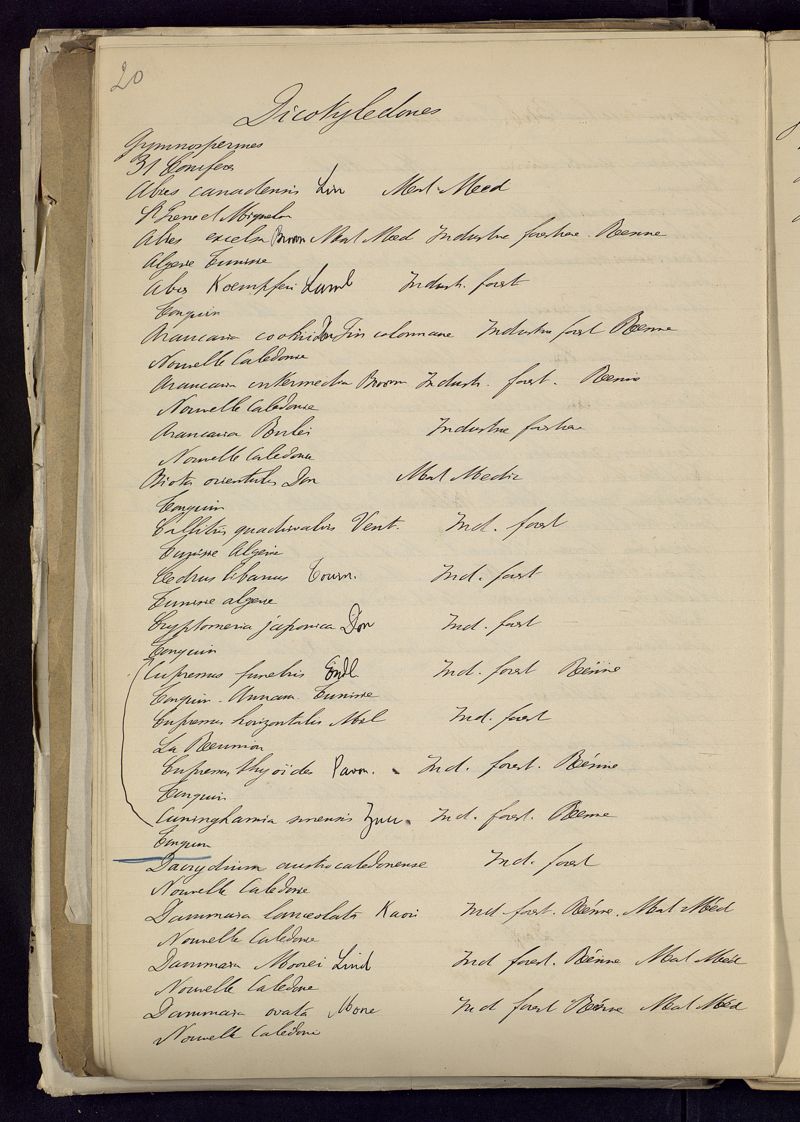 20
Dicotyledones
Gymnospermes
31 Conifères
Abies canadensis Lin Mat Med
St Pierre et Miquelon
Abies excelsa Brown Mat Med Industrie forestiere. Resine
Algerie Tunisie
Abies Koempferi Lamb Industr. forest
Tonquin
Araucaria cookii Don Pin colonnaire Industrie forest Resine
Nouvelle Caledonie
Araucaria intermedia Brown Industr. forest. Resine
Nouvelle Caledonie
Araucaria Rulei Industrie forestiere
Nouvelle Caledonie
Biota orientalis Don Mat Medic
Tonquin
Callitris quadrivalvis Vent. Ind. forest
Tunisie Algerie
Cedrus libanus Tourn. Ind. forest
Tunisie algerie
Cryptomeria japonica Don Ind. forest
Tonquin
Cupressus funebris Endl Ind. forest Résine
Tonquin. Annam. Tunisie
Cupressus horizontalis Mil Ind. forest
La Reunion
Cupressus thyoïdes Pavon. Ind. forest. Résine
Tonquin
Cuninghamia sinensis Zuu. Ind. forest. Resine
Tonquin
Dacrydium austrocaledonense Ind. forest
Nouvelle Caledonie
Dammara lanceolata Kaori Ind forest. Résine. Mat Méd
Nouvelle Caledonie
Dammara Moorei Lind Ind forest. Résine Mat Méd
Nouvelle Caledonie
Dammara ovata Moore Ind forest Résine Mat Méd
Nouvelle Calédonie